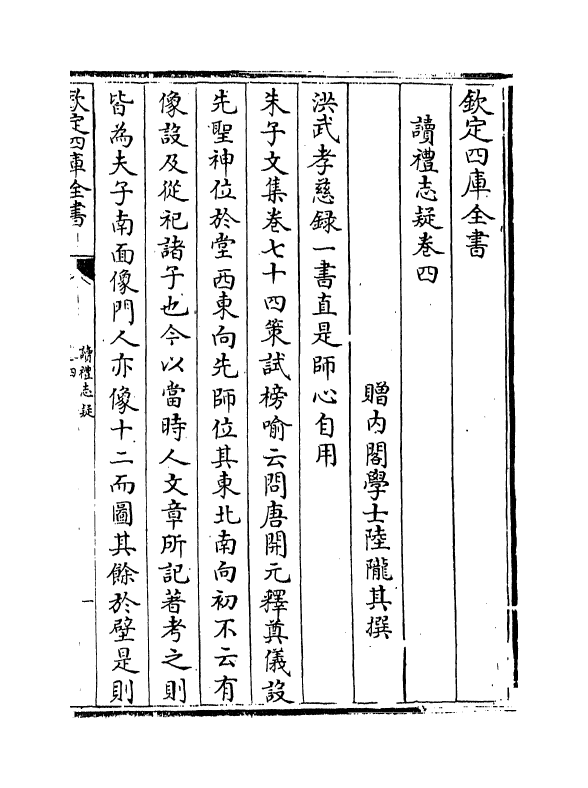 欽定四庫全書
讀禮志疑卷四
贈内閣學士陸隴其撰
洪武孝慈録一書直是師心自用
朱子文集卷七十四策試榜喻云問唐開元釋奠儀設
先聖神位於堂西東向先師位其東北南向初不云有
像設及從祀諸子也今以當時人文章所記著考之則
皆為夫子南面像門人亦像十二而圖其餘於壁是則
欽定四庫全書
讀禮志疑
卷四
一